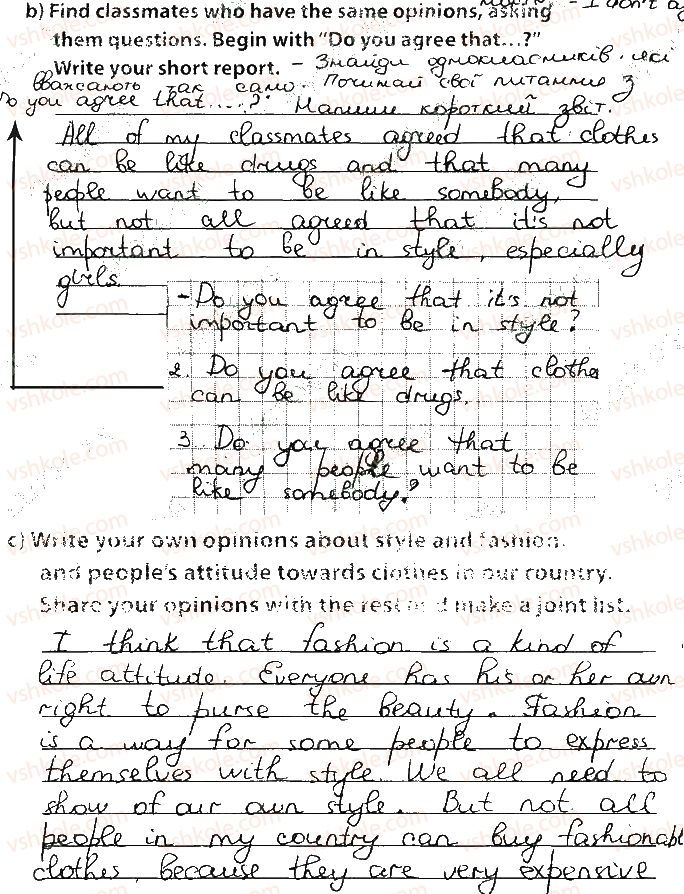 - I don't
b) Find classmates who have the same opinions, asking
them questions. Begin with “Do you agree that...?”
Write your short report. - Знайди однокласників, які
вважають так само. Починай свої питання з
Do you agree that....? Напиши короткий звіт.
All of my classmates agreed that clothes
can be like drugs and that many
people want to be like somebody,
but not all agreed that it's not
important to be in style, especially
girls.
- Do you agree that it's not
important to be in style?
2. Do you agree that clothe
can be like drugs.
3. Do you agree that
many people want to be
like somebody?
c) Write your own opinions about style and fashion.
and people's attitude towards clothes in our country.
Share your opinions with the rest and make a joint list.
I think that fashion is a kind of
life attitude. Everyone has his or her own
right to purse the beauty. Fashion
is a way for some people to express
themselves with style. We all need to
show of our own style. But not all
people in my country can buy fashionabl
clothes, because they are very expensive
vshkole.com